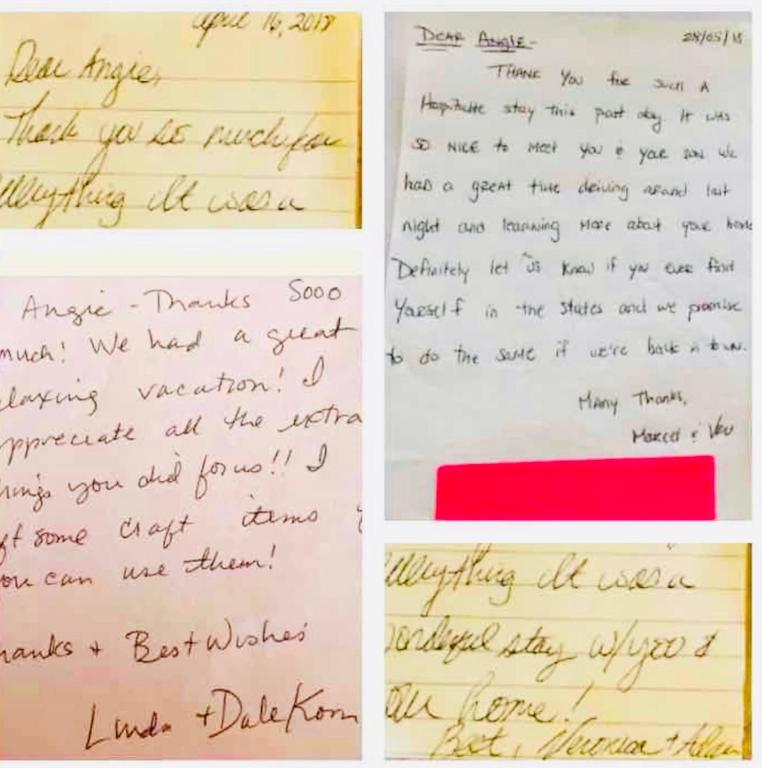 April 16, 2018
Dear Angie,
Thank you so much for
everything It was a
DEAR ANGIE-
28/05/18
THANK YOU for such A
Hospitable stay this past day. It was
SO NICE to Meet you & your son. We
had a great time driving around last
night and learning More about your home
Definitely let us know if you ever find
Yourself in the States and we promise
to do the same if we're back in town.
Many Thanks,
Marcel &
Angie - Thanks Sooo
much! We had a great
elaxing vacation! I
appreciate all the extra
hings you did for us!! I
eft some craft items
you can use them!
hanks + Best Wishes
Linda + Dale Korn
everything It was a
onderful stay w/you &
our home!
Best, Veronica + Adam